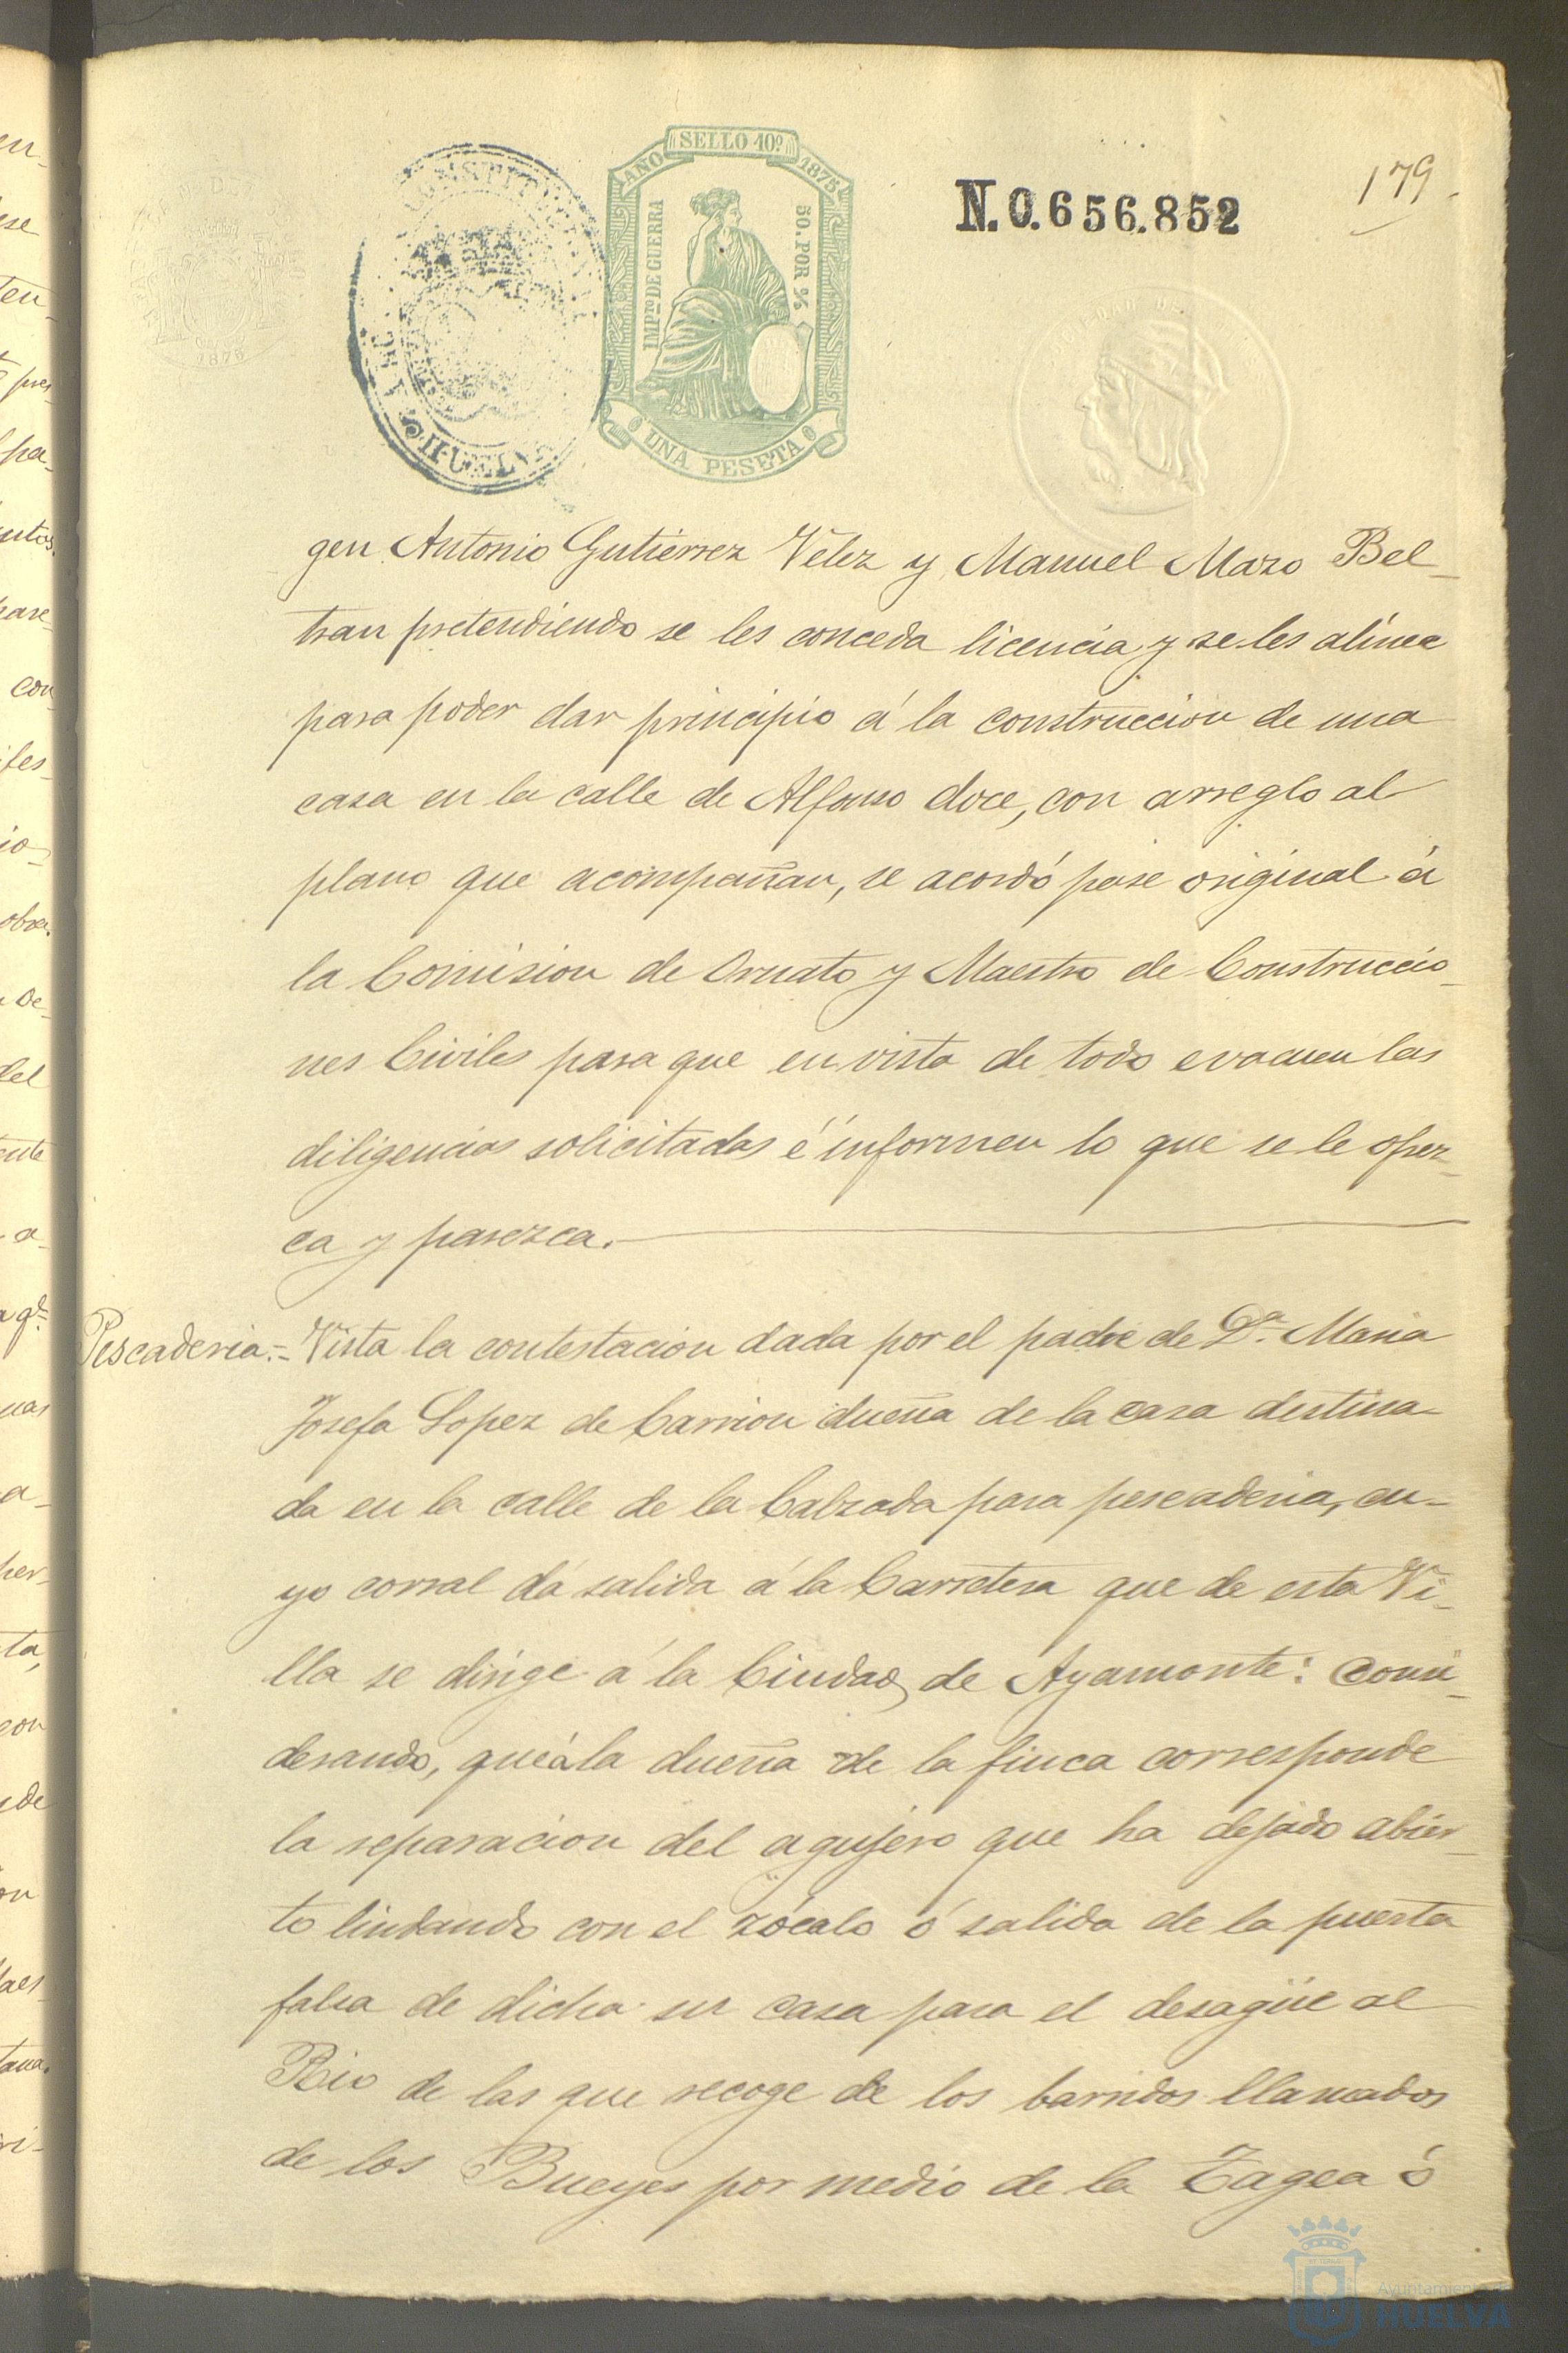 SELLO 10º
AÑO 1875
IMPTO DE GUERRA
50. POR %
UNA PESETA
HUELVA
1875
N.0.656.852
179
gen Antonio Gutierrez Velez y Manuel Mazo Bel-
tran pretendiendo se les conceda licencia y se les alinea
para poder dar principio á la construccion de una
casa en la calle de Alfonso doce, con arreglo al
plano que acompañan, se acordó pase original á
la Comision de Ornato y Maestro de Construccio-
nes Civiles para que en vista de todo evacuen las
diligencias solicitadas é informen lo que se le ofrez-
ca y parezca.
Pescaderia.=
Vista la contestacion dada por el padre de Dª. Maria
Josefa Lopez de Carrion dueña de la casa destina-
da en la calle de la Calzada para pescaderia, cu-
yo corral dá salida á la Carretera que de esta Vi-
lla se dirige á la Ciudad de Ayamonte: Consi-
derando, que á la dueña de la finca corresponde
la reparacion del agujero que ha dejado abier-
to lindando con el zócalo ó salida de la puerta
falsa de dicha su casa para el desagüe al
Rio de las que recoge de los barridos llamados
de los Bueyes por medio de la Tagea ó
Ayuntamiento de
HUELVA